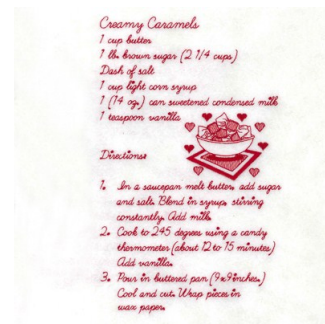 Creamy Caramels
1 cup butter
1 lb. brown sugar (2 1/4 cups)
Dash of salt
1 cup light corn syrup
1 (14 oz.) can sweetened condensed milk
1 teaspoon vanilla
Directions:
1. In a saucepan melt butter, add sugar
and salt. Blend in syrup, stirring
constantly. Add milk.
2. Cook to 245 degrees using a candy
thermometer (about 12 to 15 minutes)
Add vanilla.
3. Pour in buttered pan (9x9inches.)
Cool and cut. Wrap pieces in
wax paper.